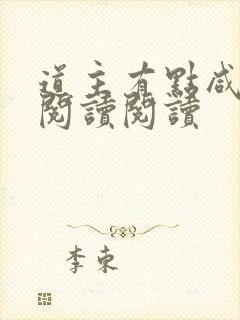 道主有點咸
閱讀閱讀
李束